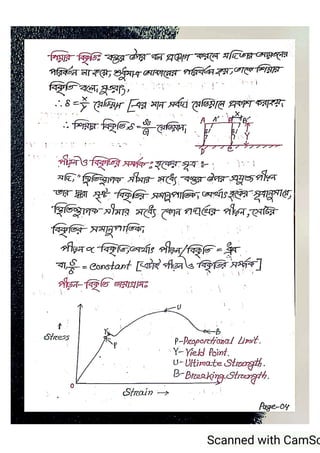 শিয়ার বিকৃতিঃ বস্তুর উপর বল প্রয়োগ করলে যদি তার আয়তনের
পরিবর্তন না হয়ে, শুধুমাত্র আকারের পরিবর্তন হয়, তাকে শিয়ার
বিকৃতি বলে, সুতরাং,
∴ শিয়ার বিকৃতি, রেডিয়ান,
পীড়ন ও বিকৃতির সম্পর্ক : হুকের সূত্র :-
যদি, "স্থিতিস্থাপক সীমার মধ্যে বস্তুর উপর প্রযুক্ত পীড়ন
তার দ্বারা সৃষ্ট বিকৃতির সমানুপাতিক, অর্থাৎ হুকের সূত্রানুসারে,
স্থিতিস্থাপক সীমার মধ্যে কোন পদার্থের পীড়ন, সেটির
বিকৃতির সমানুপাতিক,
পীড়ন ∝ বিকৃতি, অর্থাৎ পীড়ন/বিকৃতি = ধ্রুব
বা, = constant [এটাই পীড়ন ও বিকৃতির সম্পর্ক]
পীড়ন- বিকৃতি ডায়াগ্রামঃ
U
Y
P
B
↑
Stress
P-Proportional Limit.
Y- Yield Point.
U- Ultimate Strength.
B- Breaking Strength.
O
Strain →
Page-04
Scanned with CamSc